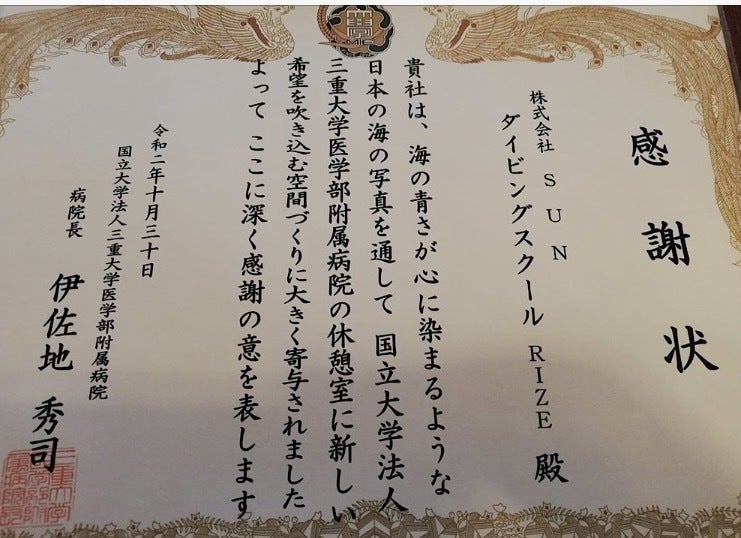 感謝状
株式会社 SUN
ダイビングスクール RIZE 殿
貴社は、海の青さが心に染まるような
日本の海の写真を通して 国立大学法人
三重大学医学部附属病院の休憩室に新しい
希望を吹き込む空間づくりに大きく寄与されました
よって ここに深く感謝の意を表します
令和二年十月三十日
国立大学法人三重大学医学部附属病院
病院長 伊佐地 秀司